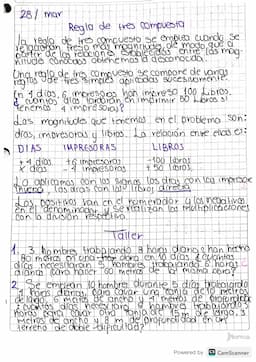 28/mar
Regla de tres compuesta
La regla de tres compuesta se emplea cuando se
relacionan tres o más magnitudes, de modo que a
partir de las relaciones establecidas entre las mag-
nitudes conocidas obtenemos la desconocida.
Una regla de tres compuesta se compone de varias
reglas de tres simples aplicadas sucesivamente.
En 4 días 6 impresoras han impreso 100 libros.
¿cuántos días tardarán en imprimir 50 libros si
tenemos 4 impresoras?
Las magnitudes que tenemos en el problema son:
días, impresoras y libros. La relación entre ellas es:
DIAS IMPRESORAS LIBROS
+4 días +6 impresoras -100 libros
x días -4 impresoras +50 libros
Lo aplicamos con los signos los días con las impresoras
inversa y las días con los libros directa
Los positivos van en el numerador y los negativos
en el denominador y se realizan las multiplicaciones
con la división respectiva.
Taller
1. 3 hombres trabajando 8 horas diarias han hecho
80 metros en una obra en 10 días ¿cuántos
días necesitarán 5 hombres trabajando 6 horas
diarias para hacer 60 metros de la misma obra?
2. Se emplean 10 hombres durante 5 días trabajando
4 horas diarias para cavar una zanja de 10 metros
de largo, 6 metros de ancho y 4 metros de profundidad
¿cuántos días necesitarán 6 hombres trabajando 3
horas para cavar otra zanja de 15 m de largo, 3
metros de ancho y 8 m de profundidad en un
terreno de doble dificultad?
Norma
Powered by CamScanner